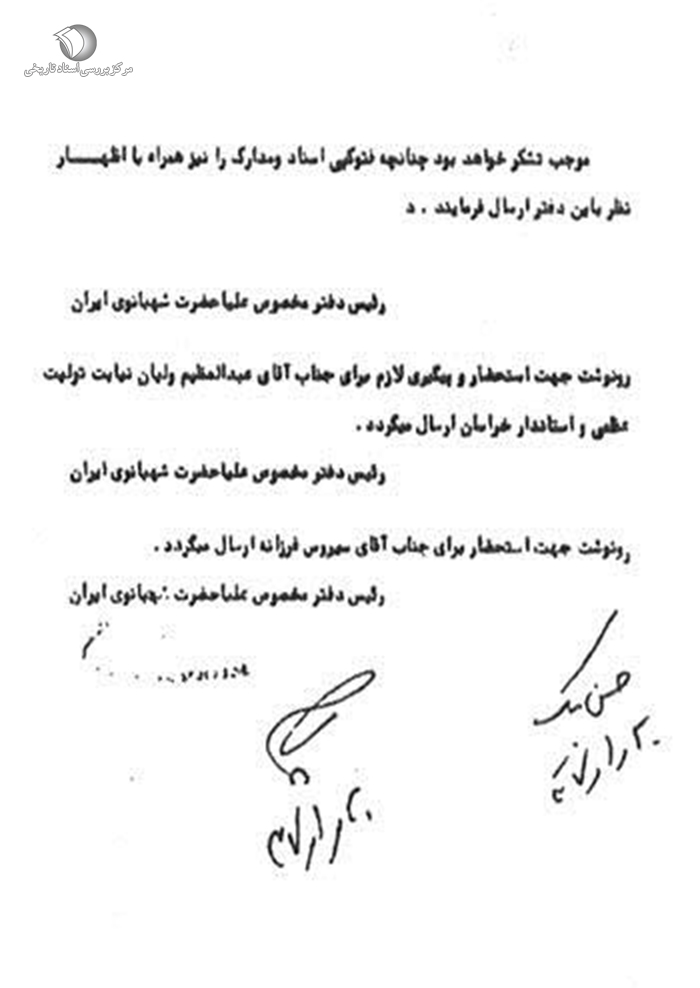 مرکز بررسی اسناد تاریخی
موجب تشکر خواهد بود چنانچه فتوکپی اسناد ومدارک را نیز همراه با اظهـــــار
نظر باین دفتر ارسال فرمایند . د
رئیس دفتر مخصوص علیاحضرت شهبانوی ایران
رونوشت جهت استحضار و پیگیری لازم برای جناب آقای عبدالعظیم ولیان نیابت تولیت
عظمی و استاندار خراسان ارسال میگردد .
رئیس دفتر مخصوص علیاحضرت شهبانوی ایران
رونوشت جهت استحضار برای جناب آقای سیروس فرزانه ارسال میگردد .
رئیس دفتر مخصوص علیاحضرت شهبانوی ایران